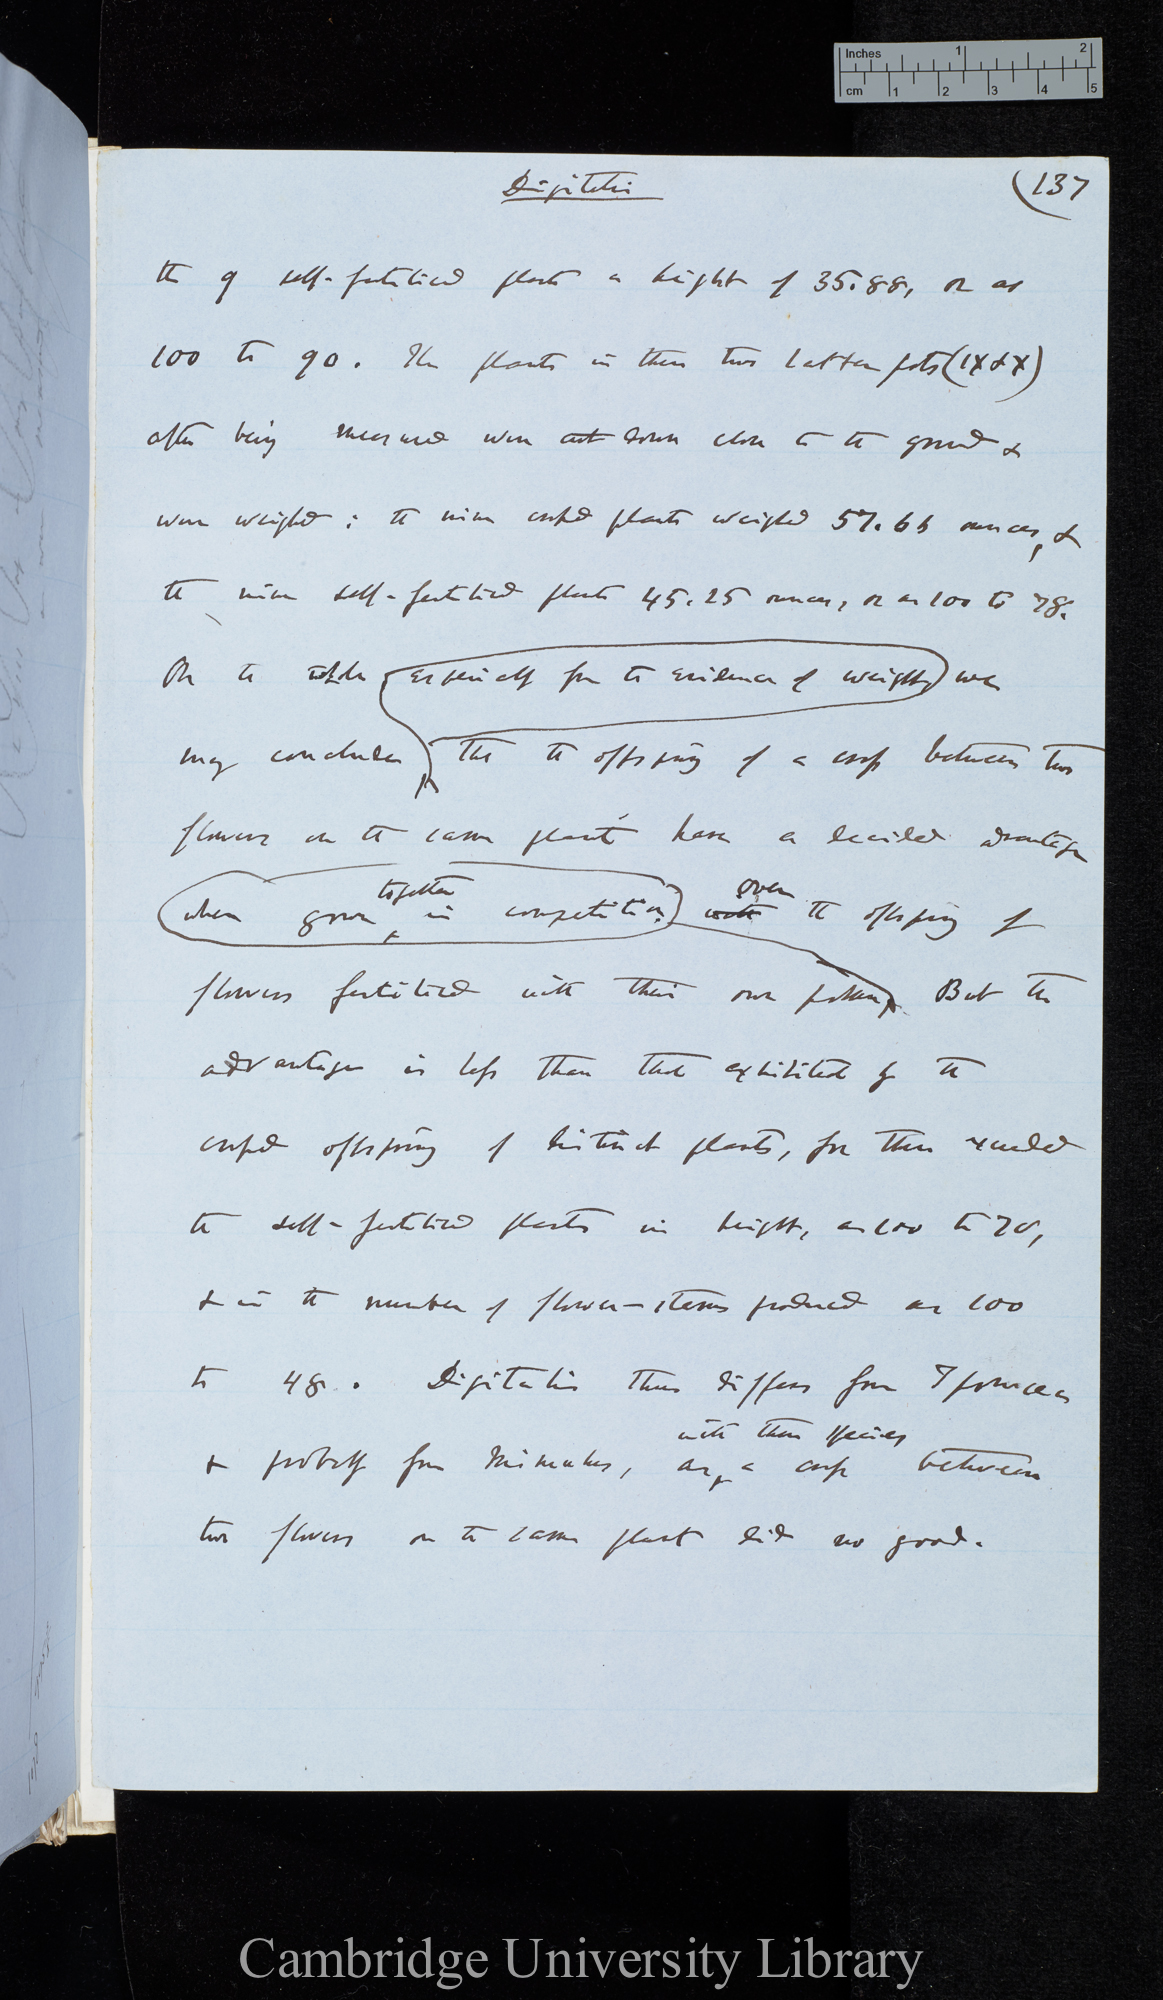 Inches 1 2
cm 1 2 3 4 5
Digitalis (137
the 9 self-fertilised plants a height of 35.88, or as
100 to 90. The plants in these two latter pots (IX & X)
after being measured were cut down close to the ground &
were weighed; the nine crossed plants weighed 57.66 ounces, &
the nine self-fertilised plants 45.25 ounces, or as 100 to 78.
On the whole especially from the evidence of weight we
may conclude, that the offspring of a cross between two
flowers on the same plant have a decided advantage
together over
when grown in competition with the offspring of
flowers fertilised with their own pollen. But the
advantage is less than that exhibited by the
crossed offspring of distinct plants, for these exceeded
the self-fertilised plants in height, as 100 to 70,
& in the number of flower-stems produced as 100
to 48. Digitalis thus differs from Ipomoea
with these species
& probably from Mimulus, as, a cross between
two flowers on the same plant did no good.
Cambridge University Library